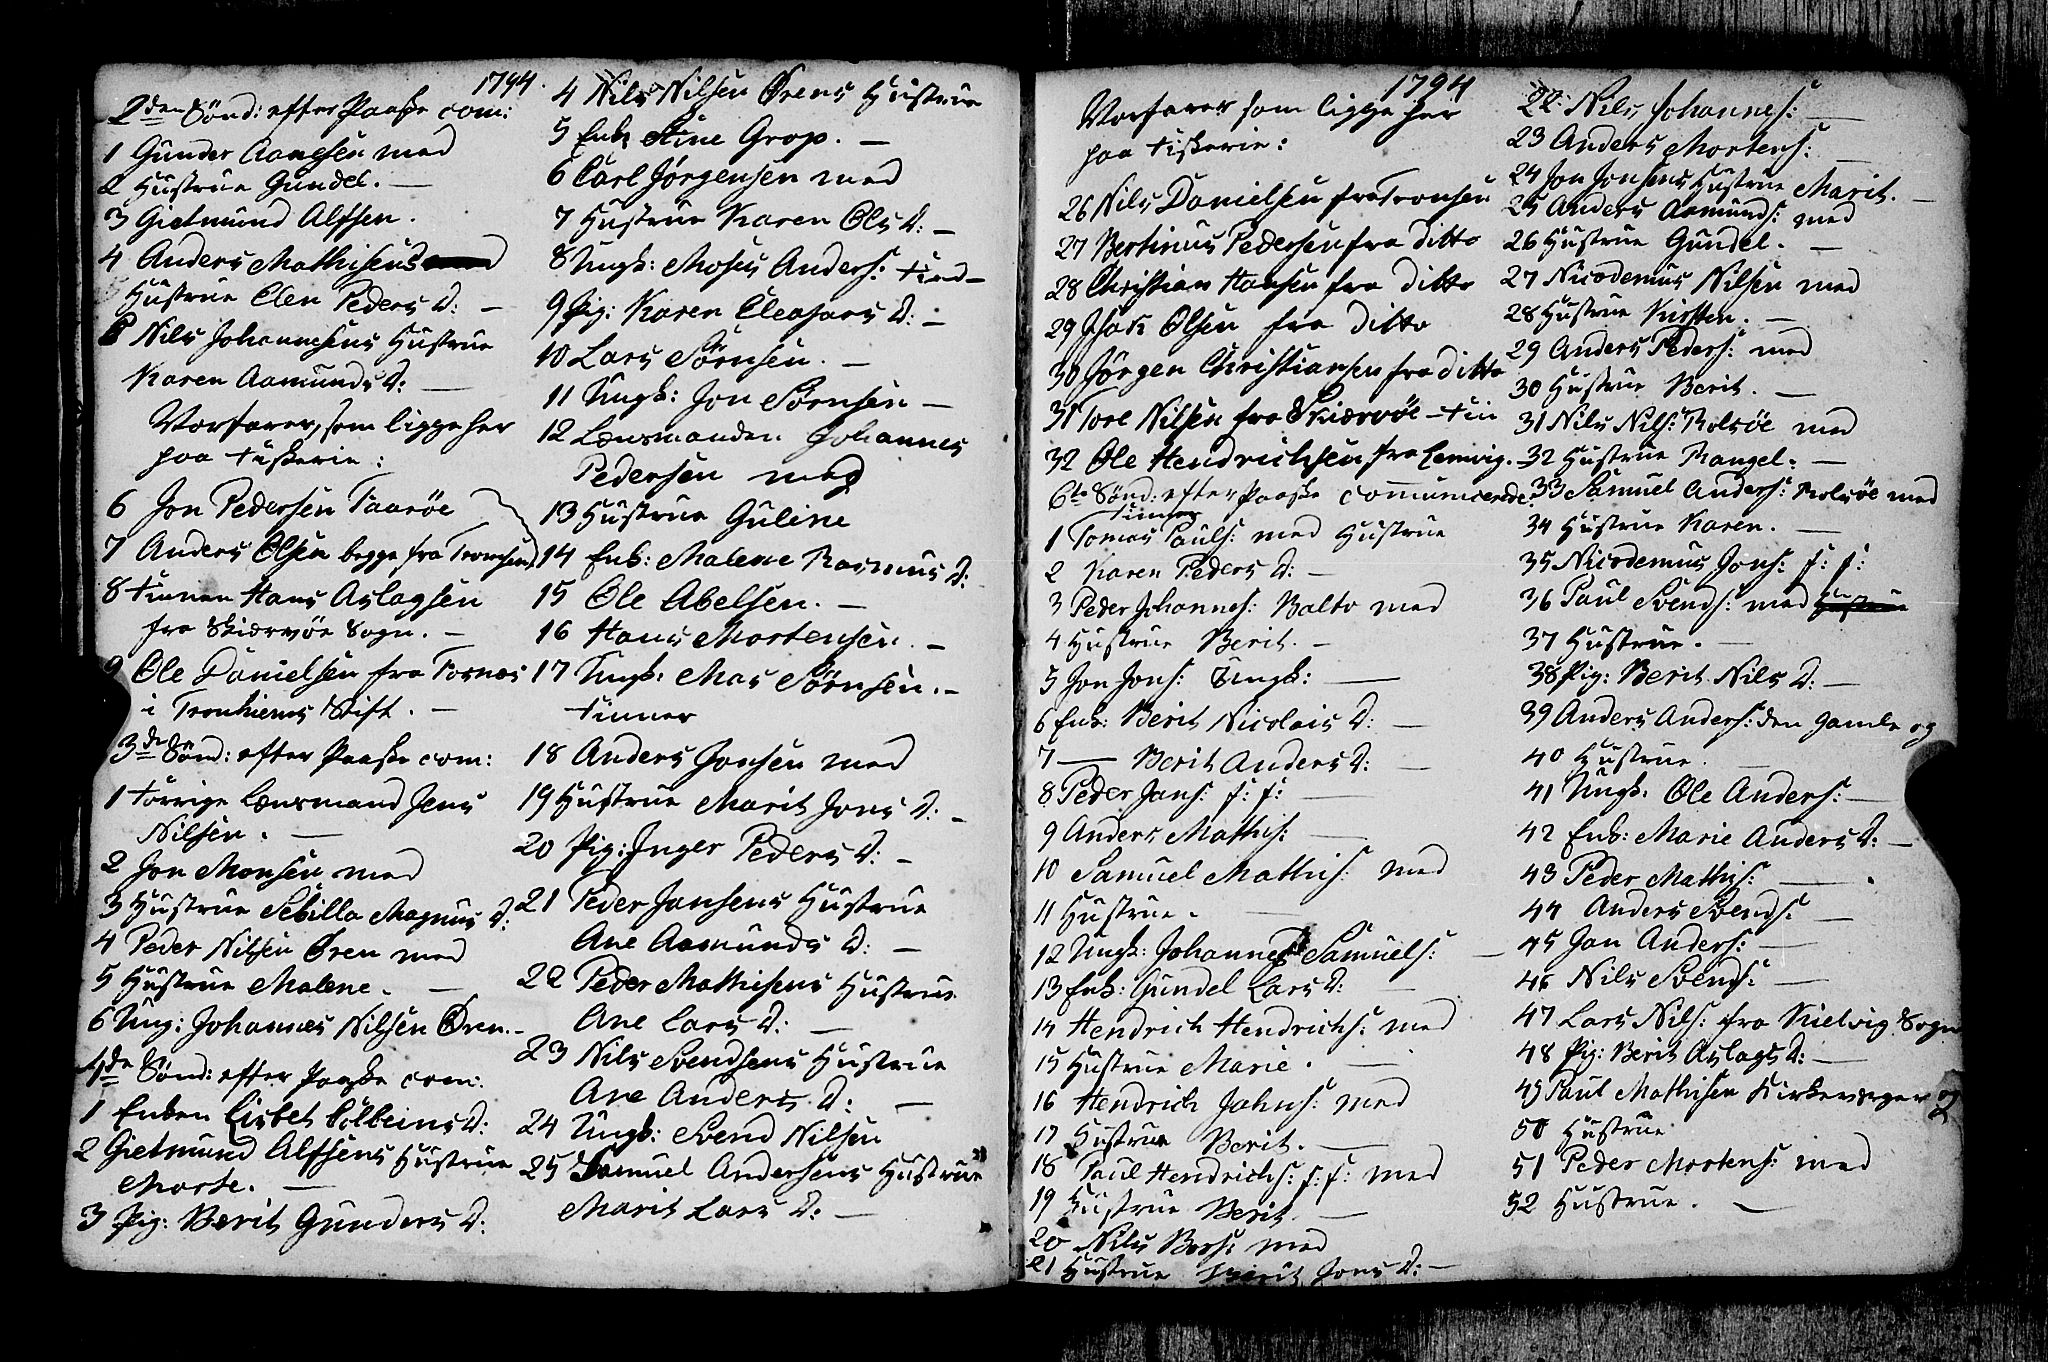 1794.
2den Sønd: efter Paaske com:
1 Gunder Aanesen med
2 Hustrue Gundel. —
3 Gietmund Alfsen.
4 Anders Mathisens
Hustrue Elen Peders D: —
5 Nils Johannesens Hustrue
Karen Aamunds D: —
Vorfarer, som ligge her
paa Fiskerie:
6 Jon Pedersen Taarøe
7 Anders Olsen begge fra Tromsen
8 Finnen Hans Aslagsen
fra Skiærvøe Sogn. —
9 Ole Danielsen fra Fosnæs
i Tronhiems Stift. —
3de Sønd: efter Paaske com:
1 Forrige Lænsmand Jens
Nilsen. —
2 Jon Monsen med
3 Hustrue Sebilla Magnus D:
4 Peder Nilsen Øren med
5 Hustrue Malene. —
6 Ung: Johannes Nilsen Øren. —
4de Sønd: efter Paaske com:
1 Enken Lisbet D:
2 Gietmund Alfsens Hustrue
Marte. —
3 Pig: Berit Gunders D:
4 Nils Nilsen Ørens Hustrue
5 Enk Stine Grop. —
6 Carl Jørgensen med
7 Hustrue Karen Ols D: —
8 Ungk: Moses Anders: —
9 Pig: Karen Eleasars D: —
10 Lars Sørnsen. —
11 Ungk: Jon Sørnsen —
12 Lænsmanden Johannes
Pedersen med
13 Hustrue Guline
14 Enk: Malene Rasmus D:
15 Ole Abelsen. —
16 Hans Mortensen. —
17 Ungk: Mas Sørnsen. —
Finner
18 Anders Jonsen med
19 Hustrue Marit Jons D: —
20 Pig: Inger Peders D: —
21 Peder Jansens Hustrue
Ane Aamunds D: —
22 Peder Mathisens Hustrue
Ane Lars D: —
23 Nils Svendsens Hustrue
Ane Anders D: —
24 Ungk: Svend Nilsen
25 Samuel Andersens Hustrue
Marit Lars D: —
1794
Vorfarer som ligge her
paa Fiskerie:
26 Nils Danielsen fra Tromsen
27 Bertinius Pedersen fra ditto
28 Christian Hansen fra ditto
29 Isak Olsen fra ditto
30 Jørgen Christiansen fra ditto
31 Tore Nilsen fra Skiærvøe — Fin
32 Ole Hendrichsen fra Lemvig. —
6te Sønd: efter Paaske communicerede
Finner
1 Tomas Pauls: med Hustrue
2 Karen Peders D: —
3 Peder Johannes: Balto med
4 Hustrue Berit. —
5 Jon Jons: Ungk: —
6 Enk: Berit Nicolais D: —
7 — Berit Anders D: —
8 Peder Jans: f: f: —
9 Anders Mathis: —
10 Samuel Mathis: med
11 Hustrue. —
12 Ungk: Johannes Samuels: —
13 Enk: Gundel Lars D: —
14 Hendrich Hendrichs: med
15 Hustrue Marie. —
16 Hendrich Johns: med
17 Hustrue Berit. —
18 Paul Hendrichs: f: f: med
19 Hustrue Berit. —
20 Nils med
21 Hustrue Jons D: —
22: Nils Johannes: —
23 Anders Mortens: —
24 Jon Jonsens Hustrue Marit. —
25 Anders Aamunds: med
26 Hustrue Gundel. —
27 Nicodemus Nilsen med
28 Hustrue Kirsten. —
29 Anders Peders: med
30 Hustrue Berit. —
31 Nils Nils: Rolsøe med
32 Hustrue Rangel: —
33 Samuel Anders: Rolsøe med
34 Hustrue Karen. —
35 Nicodemus Jons: f: f:
36 Paul Svends: med
37 Hustrue. —
38 Pig: Berit Nils D: —
39 Anders Anders: den gamle og
40 Hustrue. —
41 Ungk: Ole Anders: —
42 Enk: Marie Anders D: —
43 Peder Mathis: —
44 Anders Svends: —
45 Jon Anders: —
46 Nils Svends: —
47 Lars Nils: fra Kielvig Sogn
48 Pig: Berit Aslags D: —
49 Paul Mathisen Kirkeværger og
50 Hustrue
51 Peder Mortens: med
52 Hustrue. —